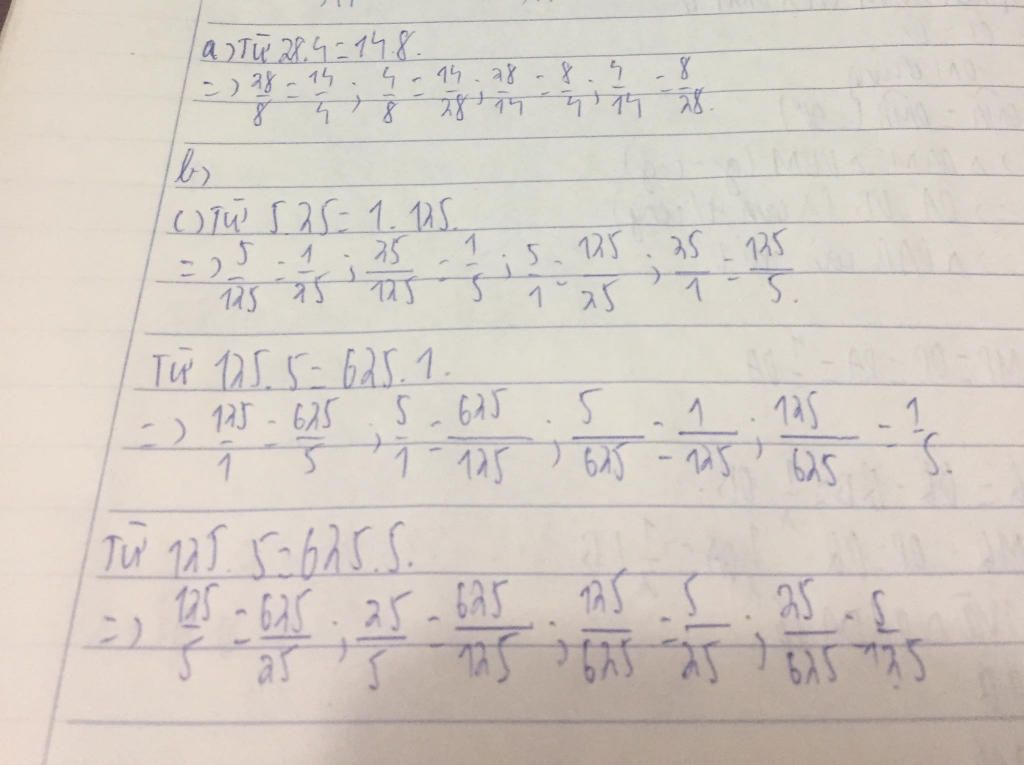 a) Từ 28.4=14.8.
=> 28/8 = 14/4 ; 4/8 = 14/28 ; 28/14 = 8/4 ; 4/14 = 8/28.
b)
c) Từ 5.25 = 1.125.
=> 5/125 = 1/25 ; 25/125 = 1/5 ; 5/1 = 125/25 ; 25/1 = 125/5.
Từ 125.5 = 625.1.
=> 125/1 = 625/5 ; 5/1 = 625/125 ; 5/625 = 1/125 ; 125/625 = 1/5.
Từ 125.5=625.5.
=> 125/5 = 625/25 ; 25/5 = 625/125 ; 125/625 = 5/25 ; 25/625 = 5/125